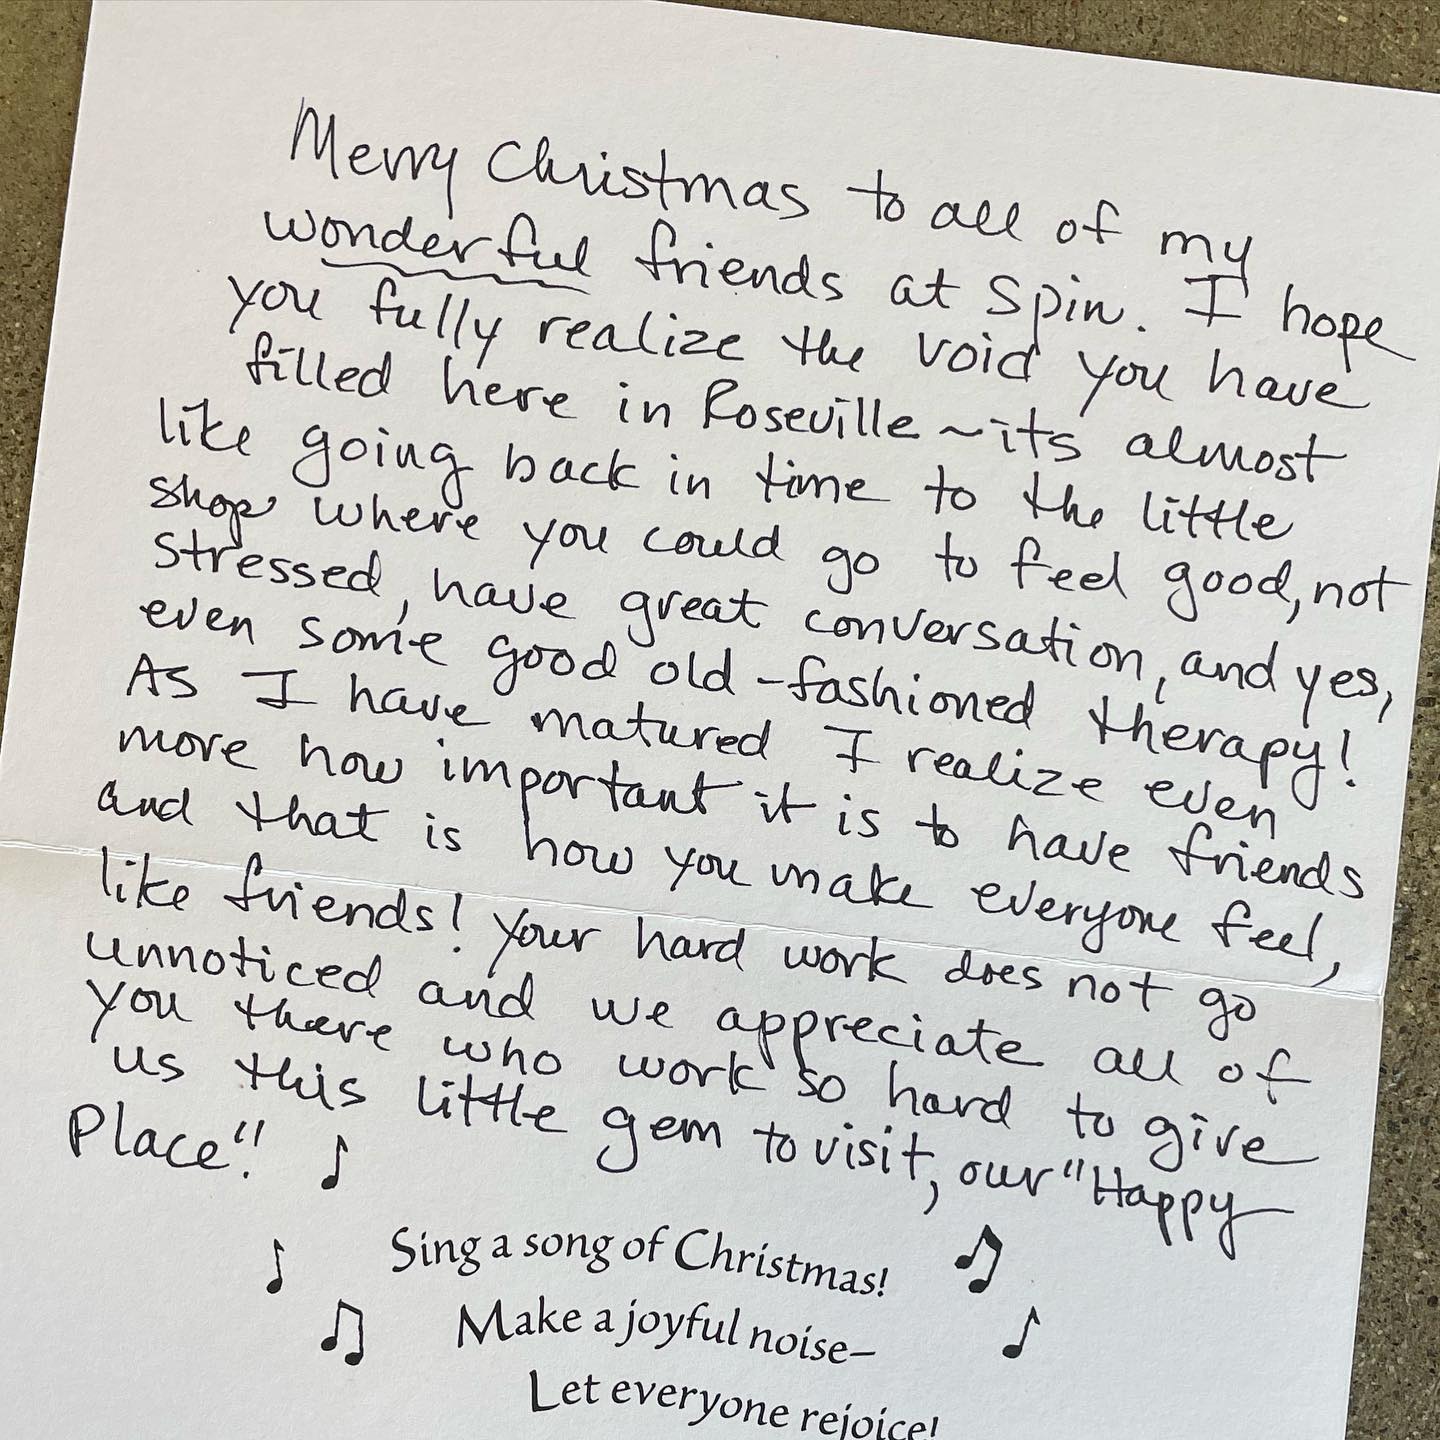 Merry Christmas to all of my
wonderful friends at Spin. I hope
you fully realize the void you have
filled here in Roseville ~ its almost
like going back in time to the little
shop where you could go to feel good, not
stressed, have great conversation, and yes,
even some good old-fashioned therapy!
As I have matured I realize even
more how important it is to have friends
and that is how you make everyone feel,
like friends! Your hard work does not go
unnoticed and we appreciate all of
you there who work so hard to give
us this little gem to visit, our "Happy
Place"!
Sing a song of Christmas!
Make a joyful noise–
Let everyone rejoice!